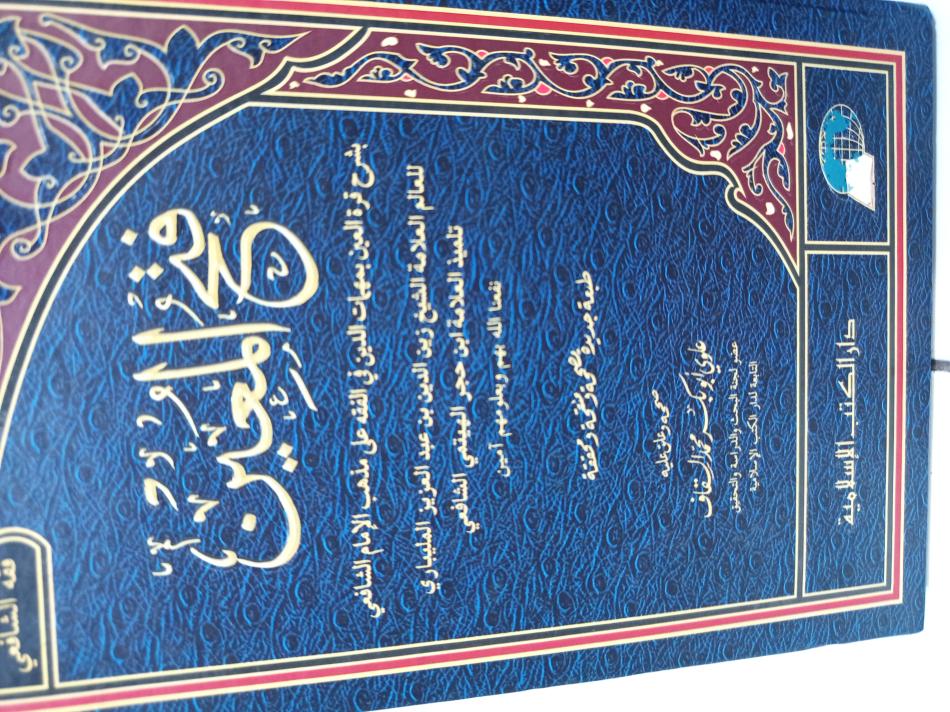 فقه الشافعي
فتح المعين
بشرح قرة العين بمهمات الدين في الفقه على مذهب الإمام الشافعي
للعالم العلامة الشيخ زين الدين بن عبد العزيز المليباري
تلميذ العلامة ابن حجر الهيتمي الشافعي
نفعنا الله بهم وبعلومهم آمين
طبعة جديدة مصححة ومنقحة ومحققة
صححه وعلق عليه
علوي أبو بكر محمد السقاف
عضو لجنة البحث والدراسة والتحقيق
التابعة لدار الكتب الإسلامية
دار الكتب الإسلامية